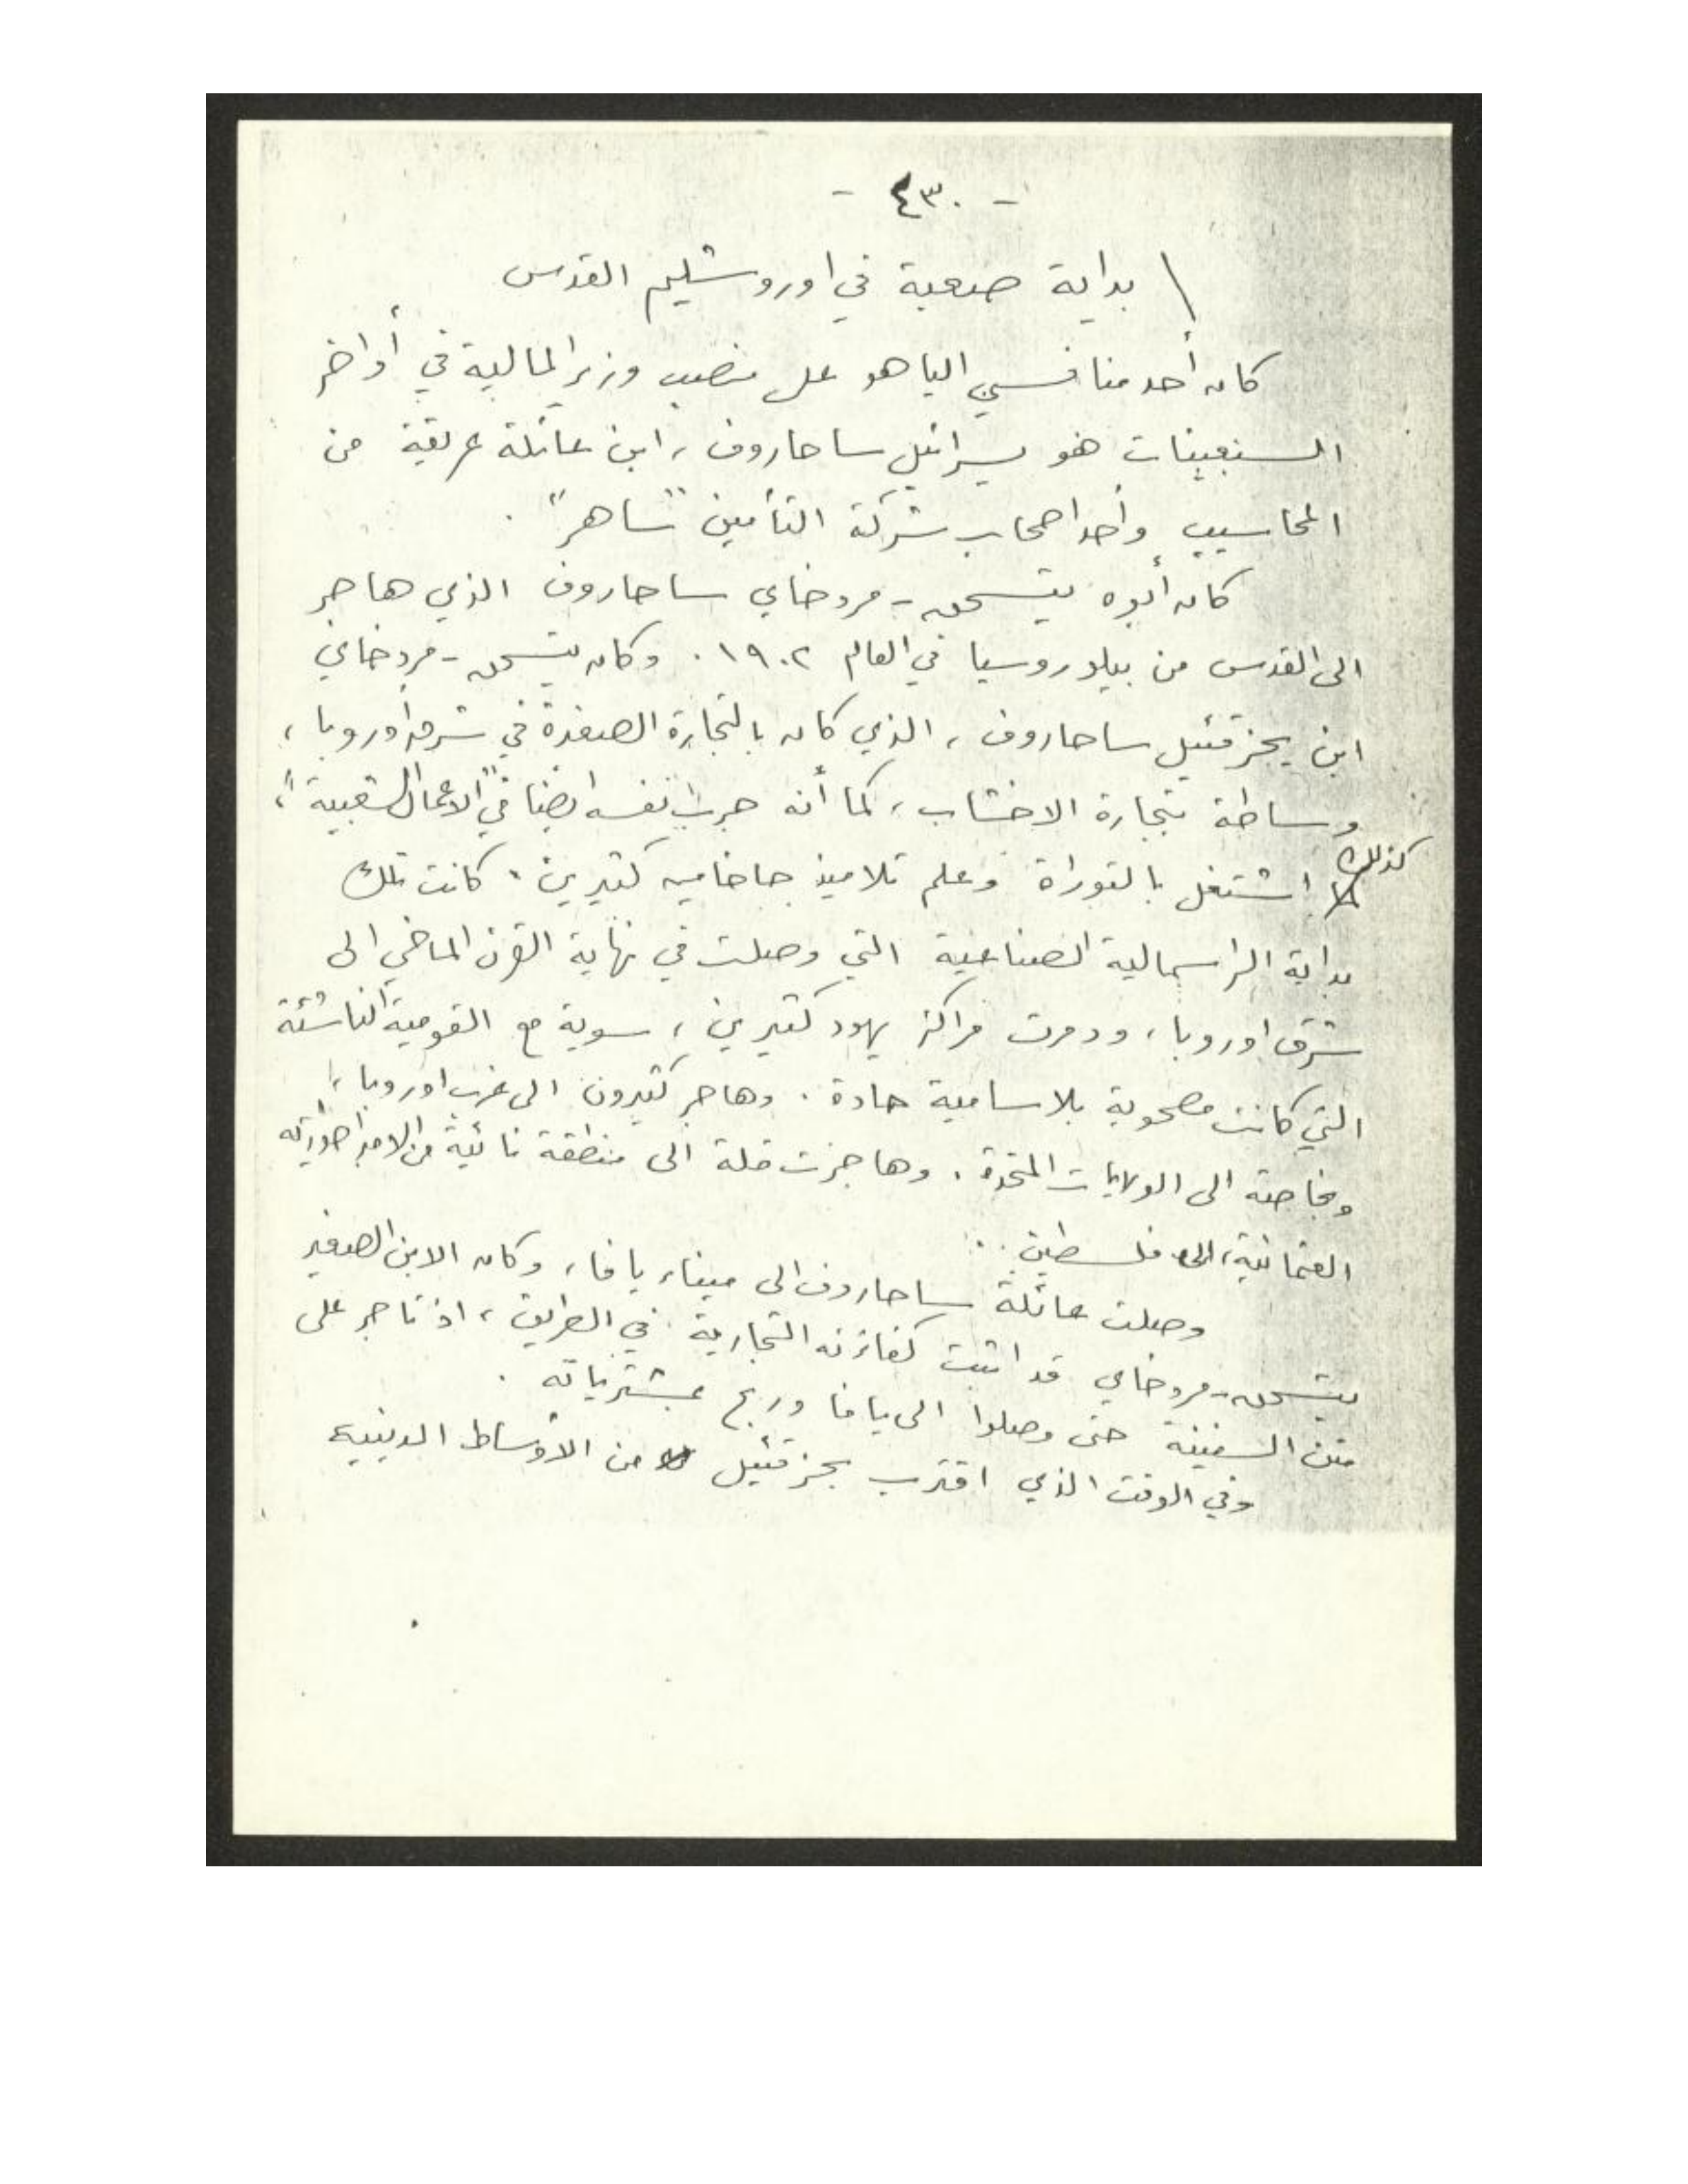 - ٤٣٠ -
بداية صعبة في اوروشليم القدس
كان أحد منافسي الياهو على منصب وزير المالية في أواخر
السبعينات هو يسرائيل ساحاروف، ابن عائلة عريقة من
المحاسيب وأحد اصحاب شركة التأمين "ساهر".
كان أبوه يتسحق - مردخاي ساحاروف الذي هاجر
الى القدس من بيلوروسيا في العام ١٩٠٢. وكان يتسحق - مردخاي
ابن يحزقئيل ساحاروف، الذي كان بالتجارة الصغيرة في شرق أوروبا،
وساطة بتجارة الاخشاب، كما أنه جرب نفسه ايضا في "الاعمال الشعبية"،
كذلك اشتغل بالتوراة وعلم تلاميذ حاخامين كثيرين. كانت تلك
بداية الراسمالية الصناعية التي وصلت في نهاية القرن الماضي الى
شرق اوروبا، ودمرت مراكز يهود كثيرين، سوية مع القومية الناشئة
التي كانت مصحوبة بلاسامية حادة. وهاجر كثيرون الى غرب اوروبا،
وبخاصة الى الولايات المتحدة. وهاجرت قلة الى منطقة نائية من الامبراطورية
العثمانية، الى فلسطين.
وصلت عائلة ساحاروف الى ميناء يافا، وكان الابن الصغير
يتسحق - مردخاي قد اثبت كفاءته التجارية في الطريق، اذ تاجر على
متن السفينة حتى وصلوا الى يافا وربح بمشترياته.
وفي الوقت الذي اقترب يحزقئيل من الأوساط الدينية